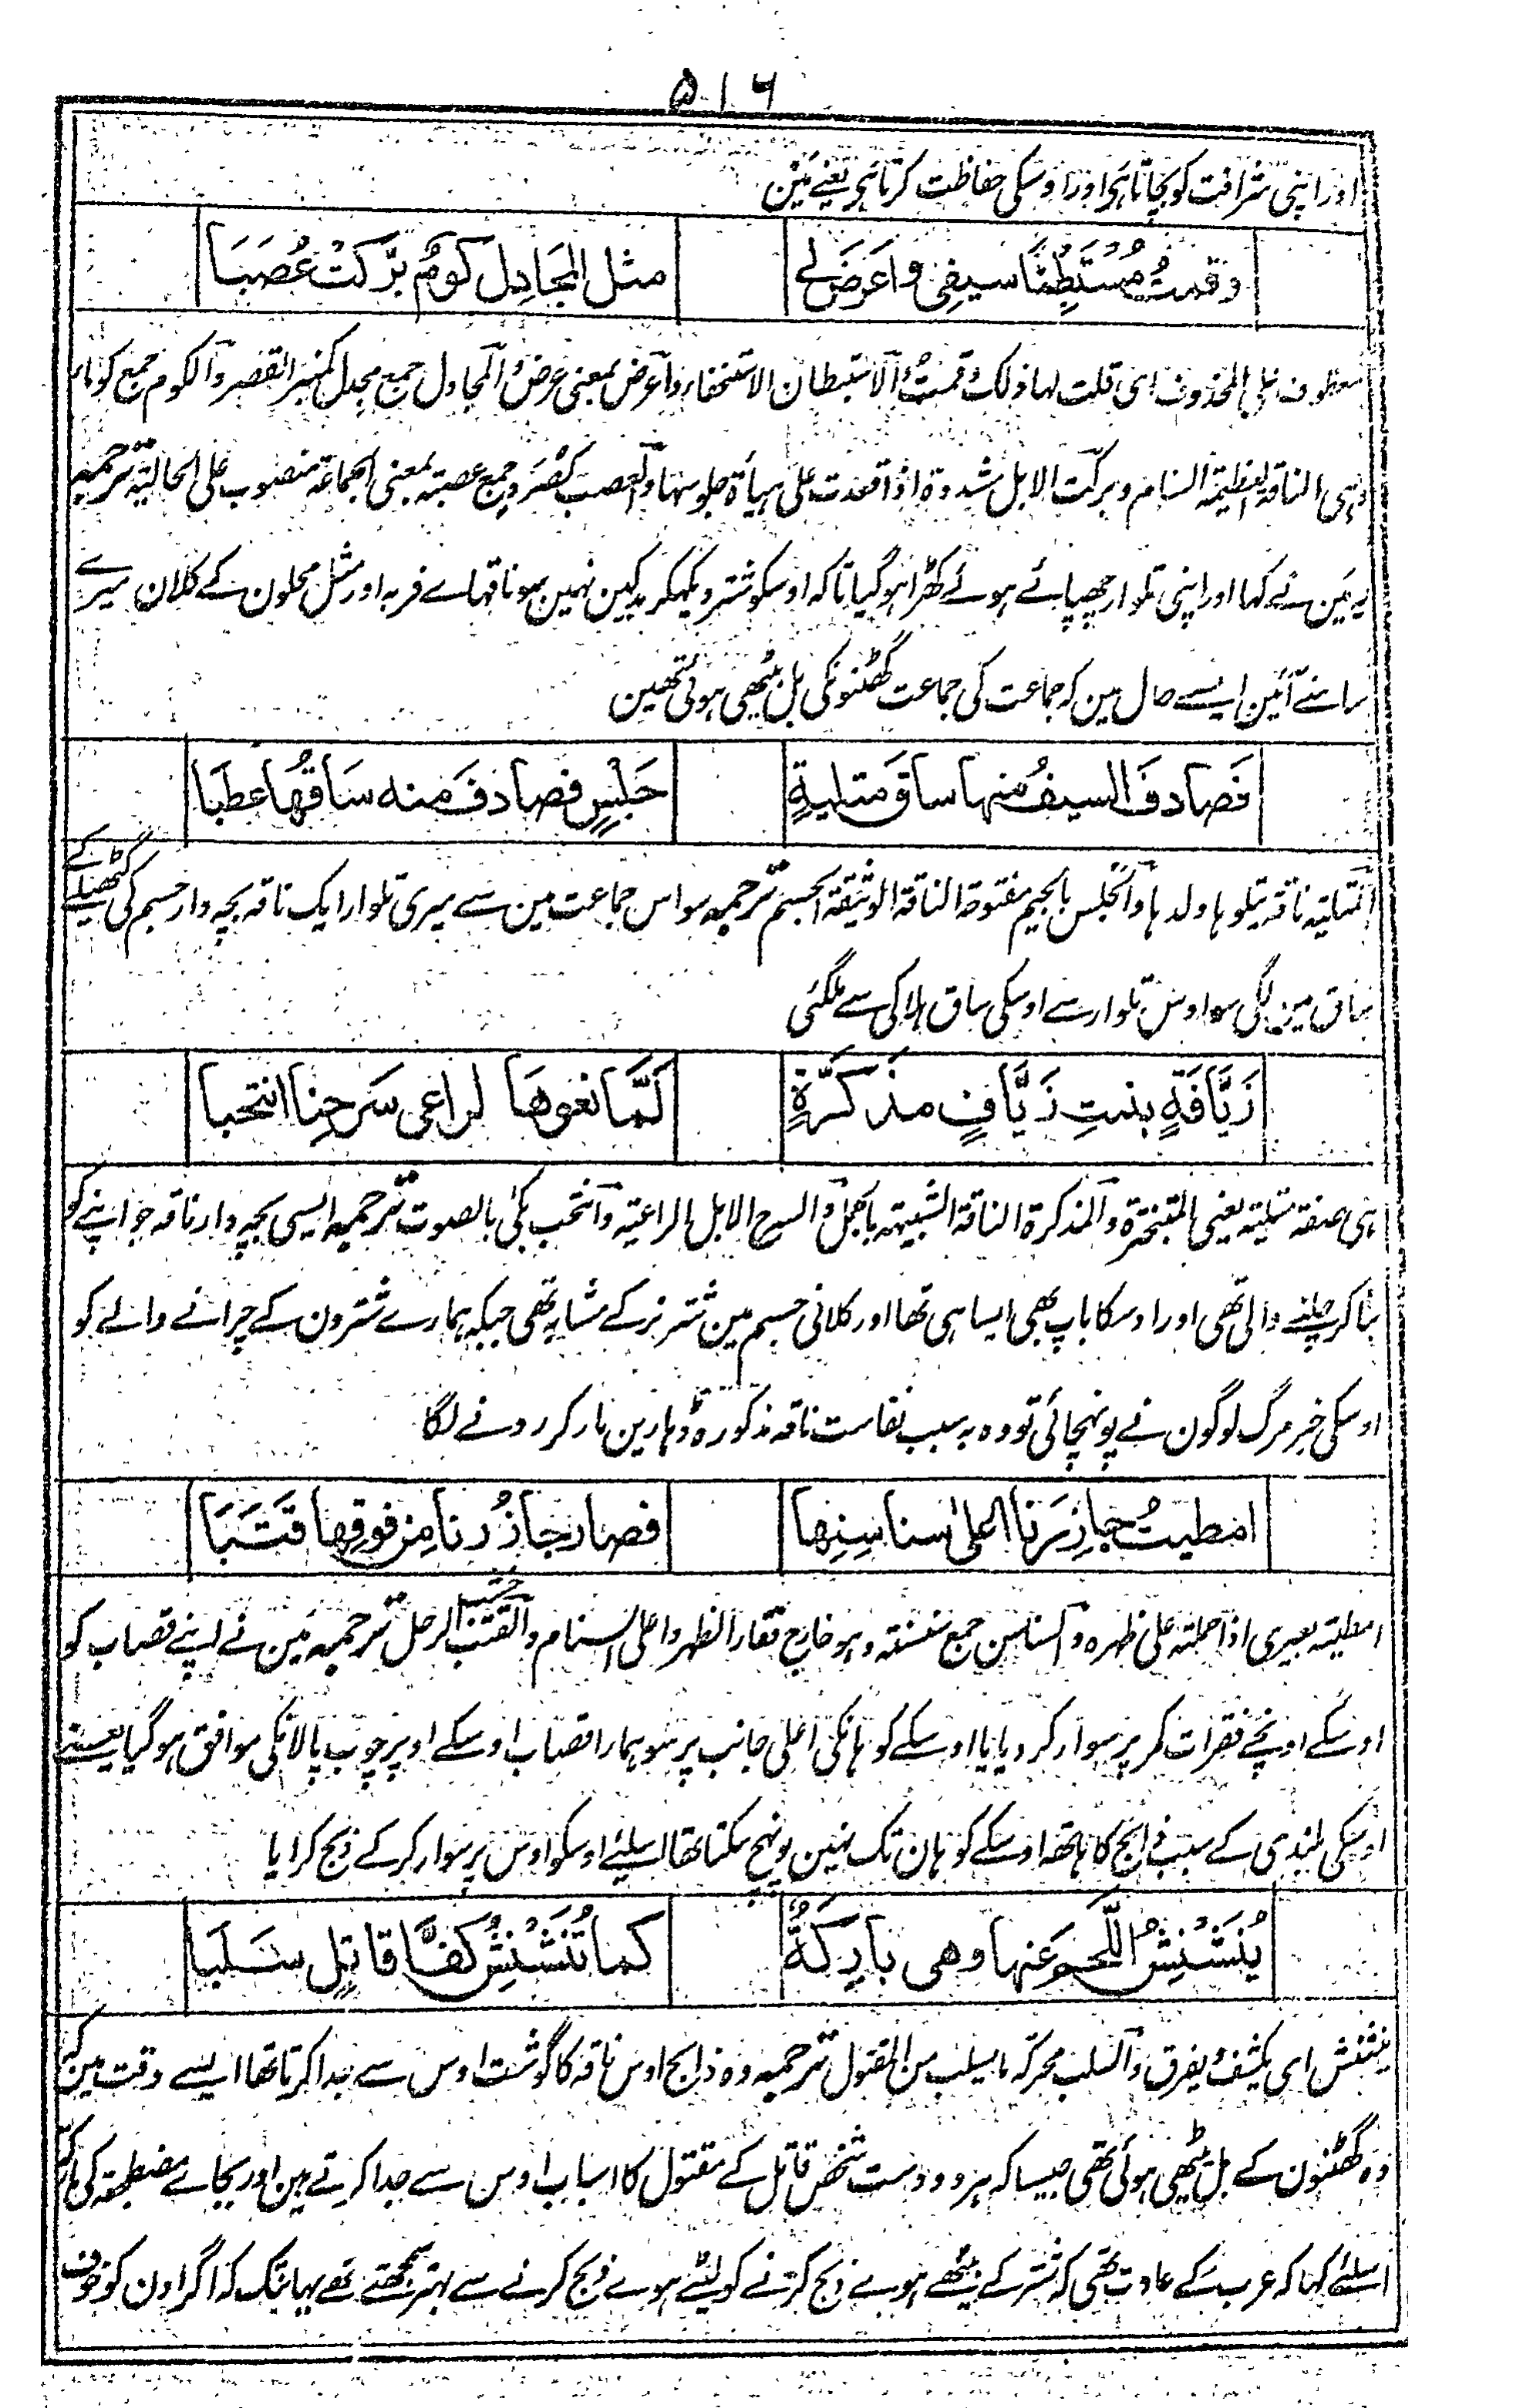 ۵۱۶
اور اپنی شرافت کو بچاتا ہی اور اوسکی حفاظت کرتا ہی یعنے مین
وقمتُ مُسْتَبْطِنًا سيفي واعرَضَ لے مثل المَجَادِل كُومٌ بَرَّكَتْ عُصَبَا
معطوف علی المحذوف ای قلت لہا ذلک وقمتُ والاستبطان الاستخفاء واعرض بمعنی عرض والمجادل جمع مجدل کمنبر القصر والکوم جمع کوماء
وہی الناقۃ العظیمۃ السنام وبرکت الابل مشددۃ اذا قعدت علی ہیأۃ جلوسہا والعصب کصرد جمع عصبتہ بمعنی الجماعۃ منصوب علی الحالیۃ ترجمہ
یہ مین نے کہا اور اپنی تلوار چھپائے ہوئے کھڑا ہوگیا تاکہ اوسکو شتر دیکھکر بدکین نہین سو ناقہاے فربہ اور مثل محلون کے کلان میرے
سامنے آئین ایسے حال مین کہ جماعت کی جماعت گھٹنونکی بل بیٹھی ہوئی تھین
فَصادفَ السيفُ منها ساقَ متليةٍ جَلْسٍ فصادفَ منه سَاقُها عطبَا
المتلیتہ ناقۃ یتلوہا ولدہا والجلس بالجیم مفتوحۃ الناقۃ الوثیقۃ الجسم ترجمہ سو اس جماعت مین سے میری تلوار ایک ناقہ بچہ دار جسم کی گٹھیلے کے
ساق مین لگی سو اوس تلوار سے اوسکی ساق ہلاکی سے ملگئی
زَيَّافَةٍ بنتِ زَيَّافٍ مذكَّرَةٍ لَمَّا نعوهَا لراعی سَرحِنا انتحبا
ہی صفۃ متلیتہ یعنی المتبخترۃ والمذکرۃ الناقۃ الشبیہۃ بالجمل والسرح الابل الراعیۃ وانتحب بکیٰ بالصوت ترجمہ ایسی بچہ دار ناقہ جو اپنے کو
بناکر چلنے والی تھی اور اوسکا باپ بھی ایسا ہی تھا اور کلانی جسم مین شتر نر کے مشابہ تھی جبکہ ہمارے شترون کے چرانے والے کو
اوسکی خبر مرگ لوگون نے پونہچائی تو وہ بہ سبب نفاست ناقہ مذکورہ ڈہارین مار کر رونے لگا
امطيتُ جازِرَنا اعلیٰ سناسِنِها فصار جازرُنا مِن فوقِها قتَبَا
امطیتہ بعیری اذا حملتہ علی ظہرہ والسناسن جمع سنسنتہ وہو خارج فقار الظہر واعلی السنام والقتب خشب الرحل ترجمہ مین نے اپنے قصاب کو
اوسکے اونچے فقرات کمر پر سوار کردیا یا اوسکے کوہانکی اعلی جانب پر سو ہمارا قصاب اوسکے اوپر چوب پالانکی موافق ہوگیا یعنے
اوسکی بلندی کے سبب ذابح کا ہاتھہ اوسکے کوہان تک نہین پونہچ سکتا تھا اسلیے اوسکو اوس پر سوار کرکے ذبح کرایا
يُنَشْنِشُ اللَّحمَ عَنها وهی باركةٌ كما تُنَشْنِشُ كفَّا قاتِلٍ سَلَبا
ینشنش ای یکشف ویفرق والسلب محرکہ مایسلب من المقتول ترجمہ وہ ذابح اوس ناقہ کا گوشت اوس سے جدا کرتا تھا ایسے وقت مین کہ
وہ گھٹنون کے بل بیٹھی ہوئی تھی جیسا کہ ہر دو دست شخص قاتل کے مقتول کا اسباب اوس سے جدا کرتے ہین اور بجاے مضطجعۃ کی بارکۃ
اسلئے کہا کہ عرب کے عادت تھی کہ شتر کے بیٹھے ہوے ذبح کرنے کو لیٹے ہوے ذبح کرنے سے بہتر سمجھتے تھے یہانتک کہ اگر اون کو خوف